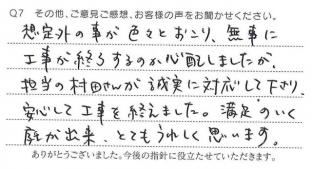 Q7 その他、ご意見ご感想、お客様の声をお聞かせください。
想定外の事が色々とおこり、無事に
工事が終るするのか心配しましたが、
担当の村田さんが誠実に対応して下さり、
安心して工事を終えました。満足のいく
庭が出来、とてもうれしく思います。
ありがとうございました。今後の指針に役立たせていただきます。